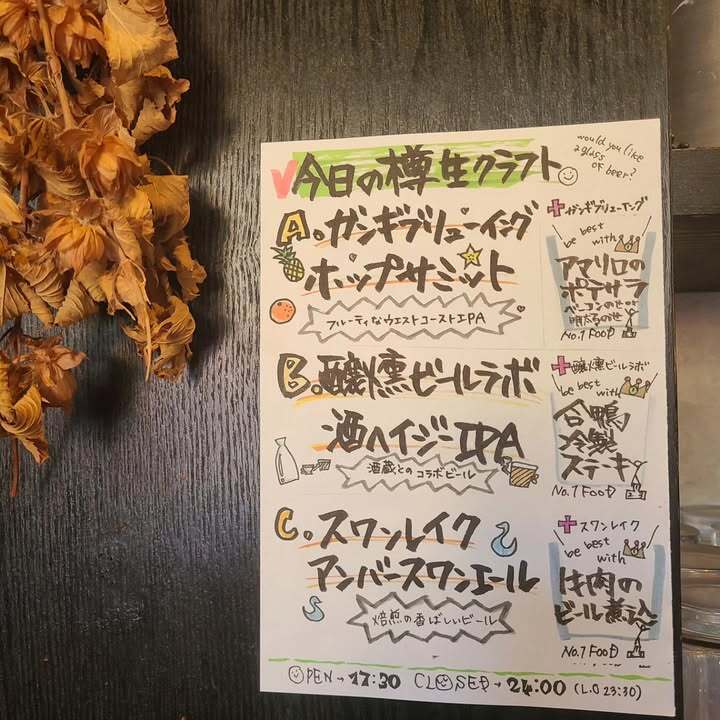 今日の樽生クラフト
would you like
a glass
of beer?
A. ガンギブリューイング
ホップサミット
フルーティなウエストコーストIPA
+ ガンギブリューイング
be best
with
アマリロの
ポテサラ
ベーコンのせ or
明太のせ
No.1 FOOD
B. 醸燻ビールラボ
酒ヘイジーIPA
酒蔵とのコラボビール
+ 醸燻ビールラボ
be best
with
合鴨
冷製
ステーキ
No.1 FOOD
C. スワンレイク
アンバースワンエール
焙煎の香ばしいビール
+ スワンレイク
be best
with
牛肉の
ビール煮込
No.1 FOOD
OPEN → 17:30 CLOSED → 24:00 (L.O 23:30)